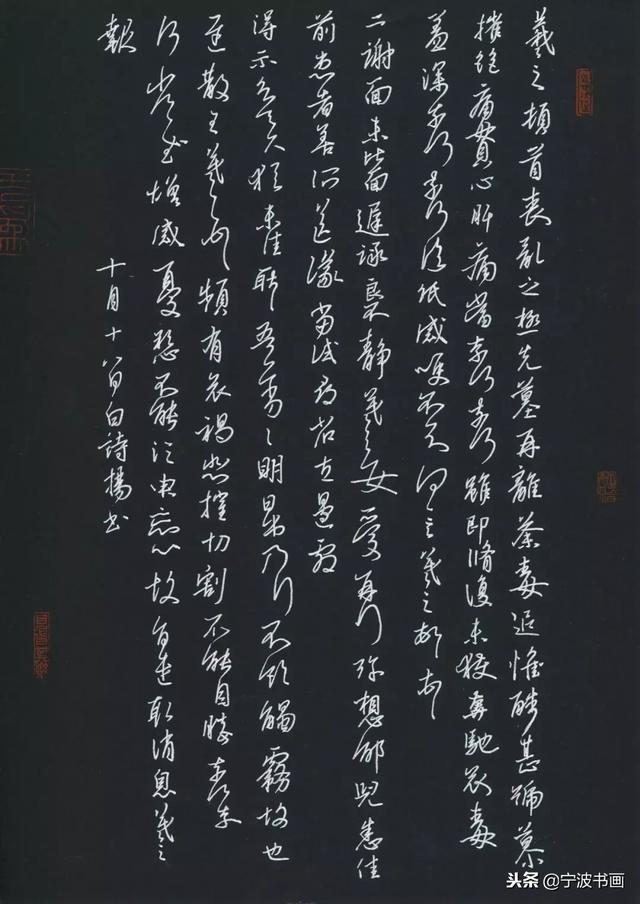 羲之頓首喪亂之極先墓再離荼毒追惟酷甚號慕
摧絕痛貫心肝痛當奈何奈何雖即脩復未獲奔馳哀毒
益深奈何奈何臨紙感哽不知何言羲之頓首頓首
二謝面未比面遲詠良靜羲之女愛再拜想邵兒悉佳
前患者善所送議當試尋省左邊劇
得示知足下猶未佳耿耿吾亦劣劣明日出乃行不欲觸霧故也
遲散王羲之頓首頻有哀禍悲摧切割不能自勝奈何奈
何省慰增感憂懸不能須臾忘心故旨遣取消息羲之
報
十月十八日白詩揚書
头条@宁波书画